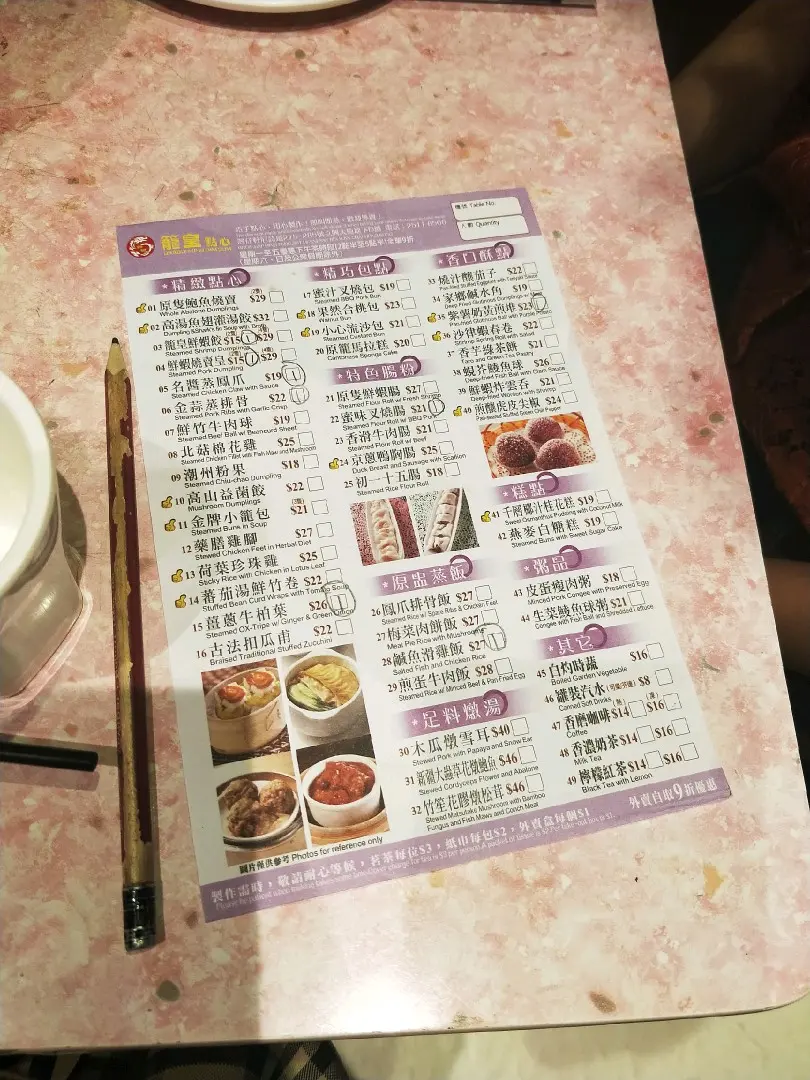 龍皇 點心
檯號 Table No.
人數 Quantity
精緻點心
01 原隻鮑魚燒賣 (2隻) $29
Whole Abalone Dumplings
02 高湯魚翅灌湯餃 $32
03 龍皇鮮蝦餃 (2隻) $15 (4隻) $29
Steamed Shrimp Dumplings
04 鮮蝦燒賣皇 (2隻) $15 (4隻) $29
Steamed Pork Dumpling
05 名醬蒸鳳爪 $19
Steamed Chicken Claw with Sauce
06 金蒜蒸排骨 $22
Steamed Pork Ribs with Garlic Crisp
07 鮮竹牛肉球 $19
Steamed Beef Ball w/ Beancurd Sheet
08 北菇棉花雞 $25
Steamed Chicken Fillet with Fish Maw and Mushroom
09 潮州粉果 $18
Steamed Chiu-chau Dumpling
10 高山益菌餃 $22
Mushroom Dumplings
11 金牌小籠包 $21
Steamed Bunk in Soup
12 藥膳雞腳 $27
Stewed Chicken Feet in Herbal Diet
13 荷葉珍珠雞 $25
Sticky Rice with Chicken in Lotus Leaf
14 蕃茄湯鮮竹卷 $22
Stuffed Bean Curd Wraps with Tomato Soup
15 薑蔥牛柏葉 $26
Steamed OX-Tripe w/ Ginger & Green Onion
16 古法扣瓜甫 $22
Braised Traditional Stuffed Zucchini
圖片祇供參考 Photos for reference only
精巧包點
17 蜜汁叉燒包 $19
Steamed BBQ Pork Bun
18 果然合桃包 $23
Walnut Bun
19 小心流沙包 $21
Steamed Custard Bun
20 原籠馬拉糕 $20
Cantonese Sponge Cake
特色腸粉
21 原隻鮮蝦腸 $27
Steamed Flour Roll w/ Fresh Shrimp
22 蜜味叉燒腸 $21
Steamed Flour Roll w/ BBQ Pork
23 香滑牛肉腸 $21
Steamed Flour Roll w/ Beef
24 京蔥鴨胸腸 $25
Duck Breast and Sausage with Scallion
25 初一十五腸 $18
Steamed Rice Flour Roll
原盅蒸飯
26 鳳爪排骨飯 $27
Steamed Rice w/ Spare Ribs & Chicken Feet
27 梅菜肉餅飯 $27
Meat Pie Rice with Mushrooms
28 鹹魚滑雞飯 $27
Salted Fish and Chicken Rice
29 煎蛋牛肉飯 $28
Steamed Rice w/ Minced Beef & Pan Fried Egg
足料燉湯
30 木瓜燉雪耳 $40
Stewed Pork with Papaya and Snow Ear
31 新疆大蟲草花燉鮑魚 $46
Stewed Cordyceps Flower and Abalone
32 竹笙花膠燉松茸 $46
Stewed Matsutake Mushroom with Bamboo
Fungus and Fish Maws and Conch Meat
香口酥點
33 燒汁釀茄子 $22
Pan-fried Stuffed Eggplants with Teriyaki Sauce
34 家鄉鹹水角 $19
35 紫薯奶黃煎堆 $23
36 沙律蝦春卷 $22
Shrimp Spring Roll with Salad
37 香芋綠茶餅 $21
Taro and Green Tea Pastry
38 蜆芥鯪魚球 $26
Deep-fried Fish Ball with Clam Sauce
39 鮮蝦炸雲吞 $21
Deep-fried Wonton with Shrimp
40 煎釀虎皮尖椒 $24
Pan-seared Stuffed Green Chili Pepper
糕點
41 千層椰汁桂花糕 $19
Sweet Osmanthus Pudding with Coconut Milk
42 燕麥白糖糕 $19
Steamed Buns with Sweet Sugar Cake
粥品
43 皮蛋瘦肉粥 $18
Minced Pork Congee with Preserved Egg
44 生菜鯪魚球粥 $21
Congee with Fish Ball and Shredded Lettuce
其它
45 白灼時蔬 $16
Boiled Garden Vegetable
46 罐裝汽水 $8
Canned Soft Drinks
47 香磨咖啡 (熱) $14 (凍) $16
Coffee
48 香濃奶茶 $14 $16
Milk Tea
49 檸檬紅茶 $14 $16
Black Tea with Lemon
外賣自取9折優惠
製作需時，敬請耐心等候，茗茶每位$3，紙巾每包$2，外賣盒每個$1